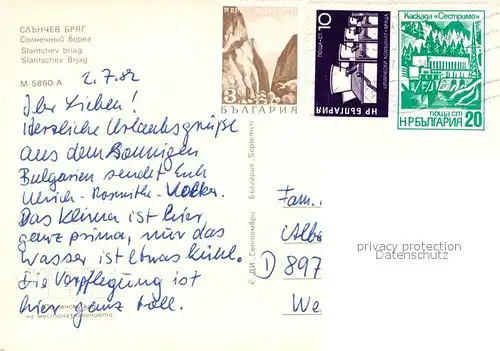 СЛЪНЧЕВ БРЯГ
Солнечный берег
Slantchev briag
Slantschev Brjag
М-5860-А
2.7.82
Ihr Lieben!
Herzliche Urlaubsgrüße
aus dem sonnigen
Bulgarien sendet Euch
Ulrich - Roswitha - Volker.
Das Klima ist hier
ganz prima, nur das
Wasser ist etwas kühl.
Die Verpflegung ist
hier ganz toll.
© ДИ „Септември" България „Septemvri"
8
БЪЛГАРИЯ
ПОЩА СТ. 10
НР БЪЛГАРИЯ
Каскада «Сестримо»
поща ст
НР БЪЛГАРИЯ 20
Fam.
Alb
D 897
We
privacy protection
Datenschutz